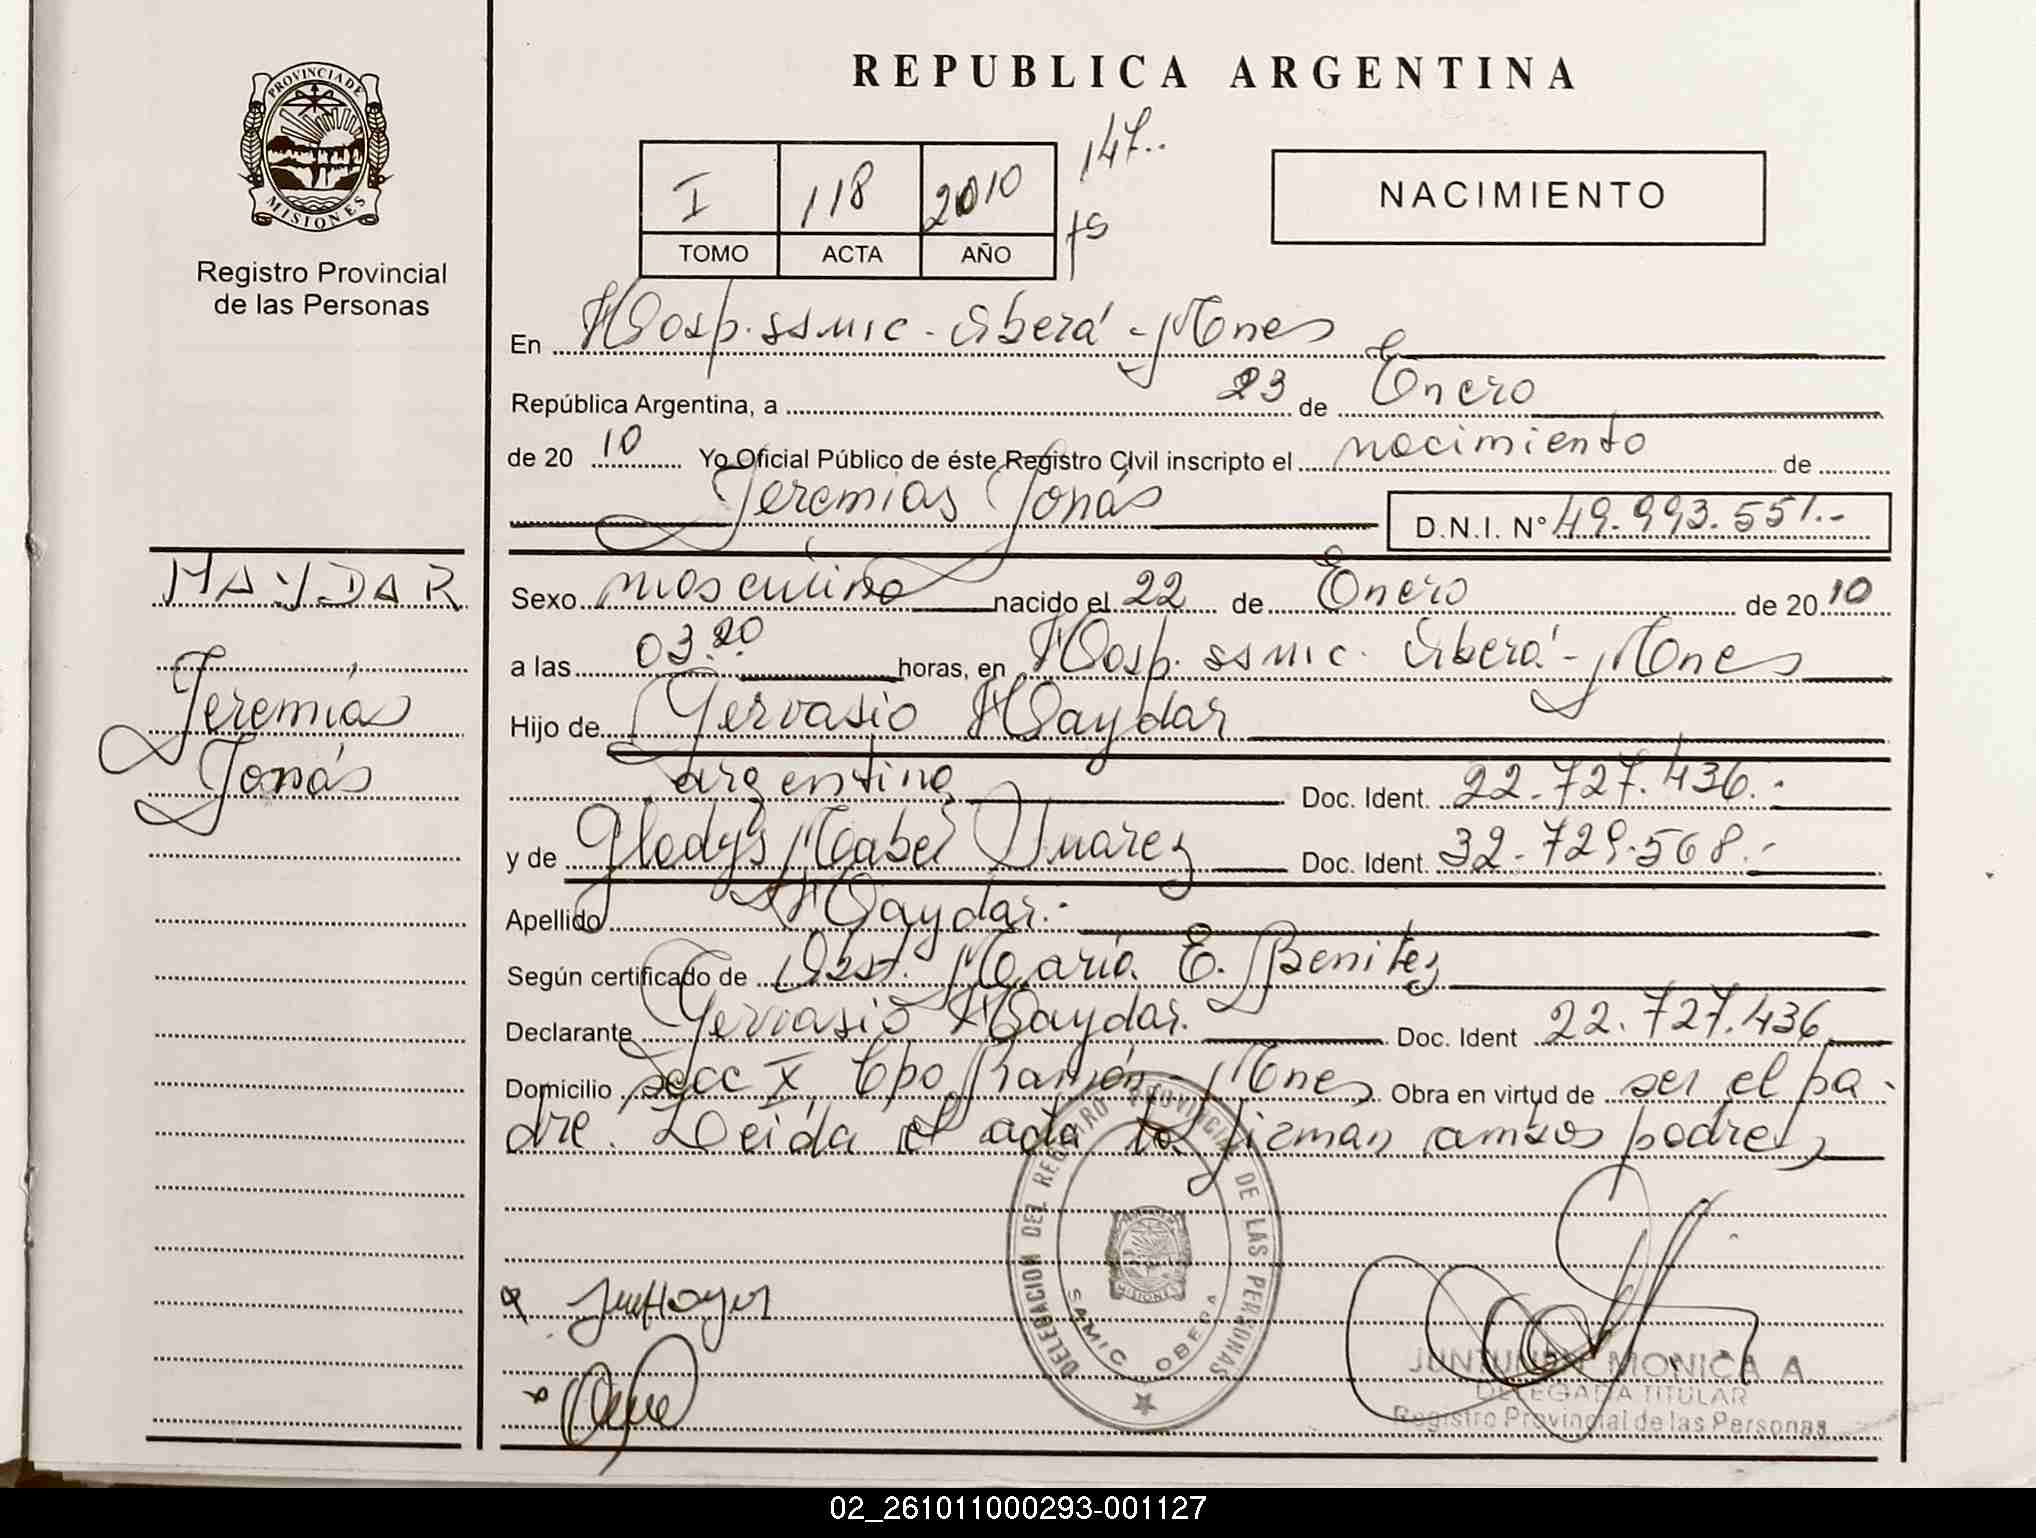 REPUBLICA ARGENTINA
PROVINCIA DE
MISIONES
Registro Provincial
de las Personas
I 118 2010
TOMO ACTA AÑO
147..
fs
NACIMIENTO
En Hosp. ssmic - Oberá - Mnes
República Argentina, a 23 de Enero
de 20 10 Yo Oficial Público de éste Registro Civil inscripto el nacimiento de
Jeremías Jonás D.N.I. N° 49.993.551.-
HAYDAR
Jeremías
Jonás
Sexo masculino nacido el 22 de Enero de 20 10
a las 03.20 horas, en Hosp. ssmic. Oberá - Mnes
Hijo de Gervasio Haydar
argentino Doc. Ident. 22.727.436.-
y de Gladys Mabel Juarez Doc. Ident. 32.729.568.-
Apellido Haydar.-
Según certificado de Obst. María E. Benitez
Declarante Gervasio Haydar. Doc. Ident 22.727.436
Domicilio secc X, Cpo Ramón - Mnes Obra en virtud de ser el pa-
dre. Leída el acta la firman ambos padres
DELEGACION DEL REGISTRO PROVINCIAL DE LAS PERSONAS
MISIONES
SAMIC OBERA
MONICA A.
DELEGADA TITULAR
Registro Provincial de las Personas
02_261011000293-001127